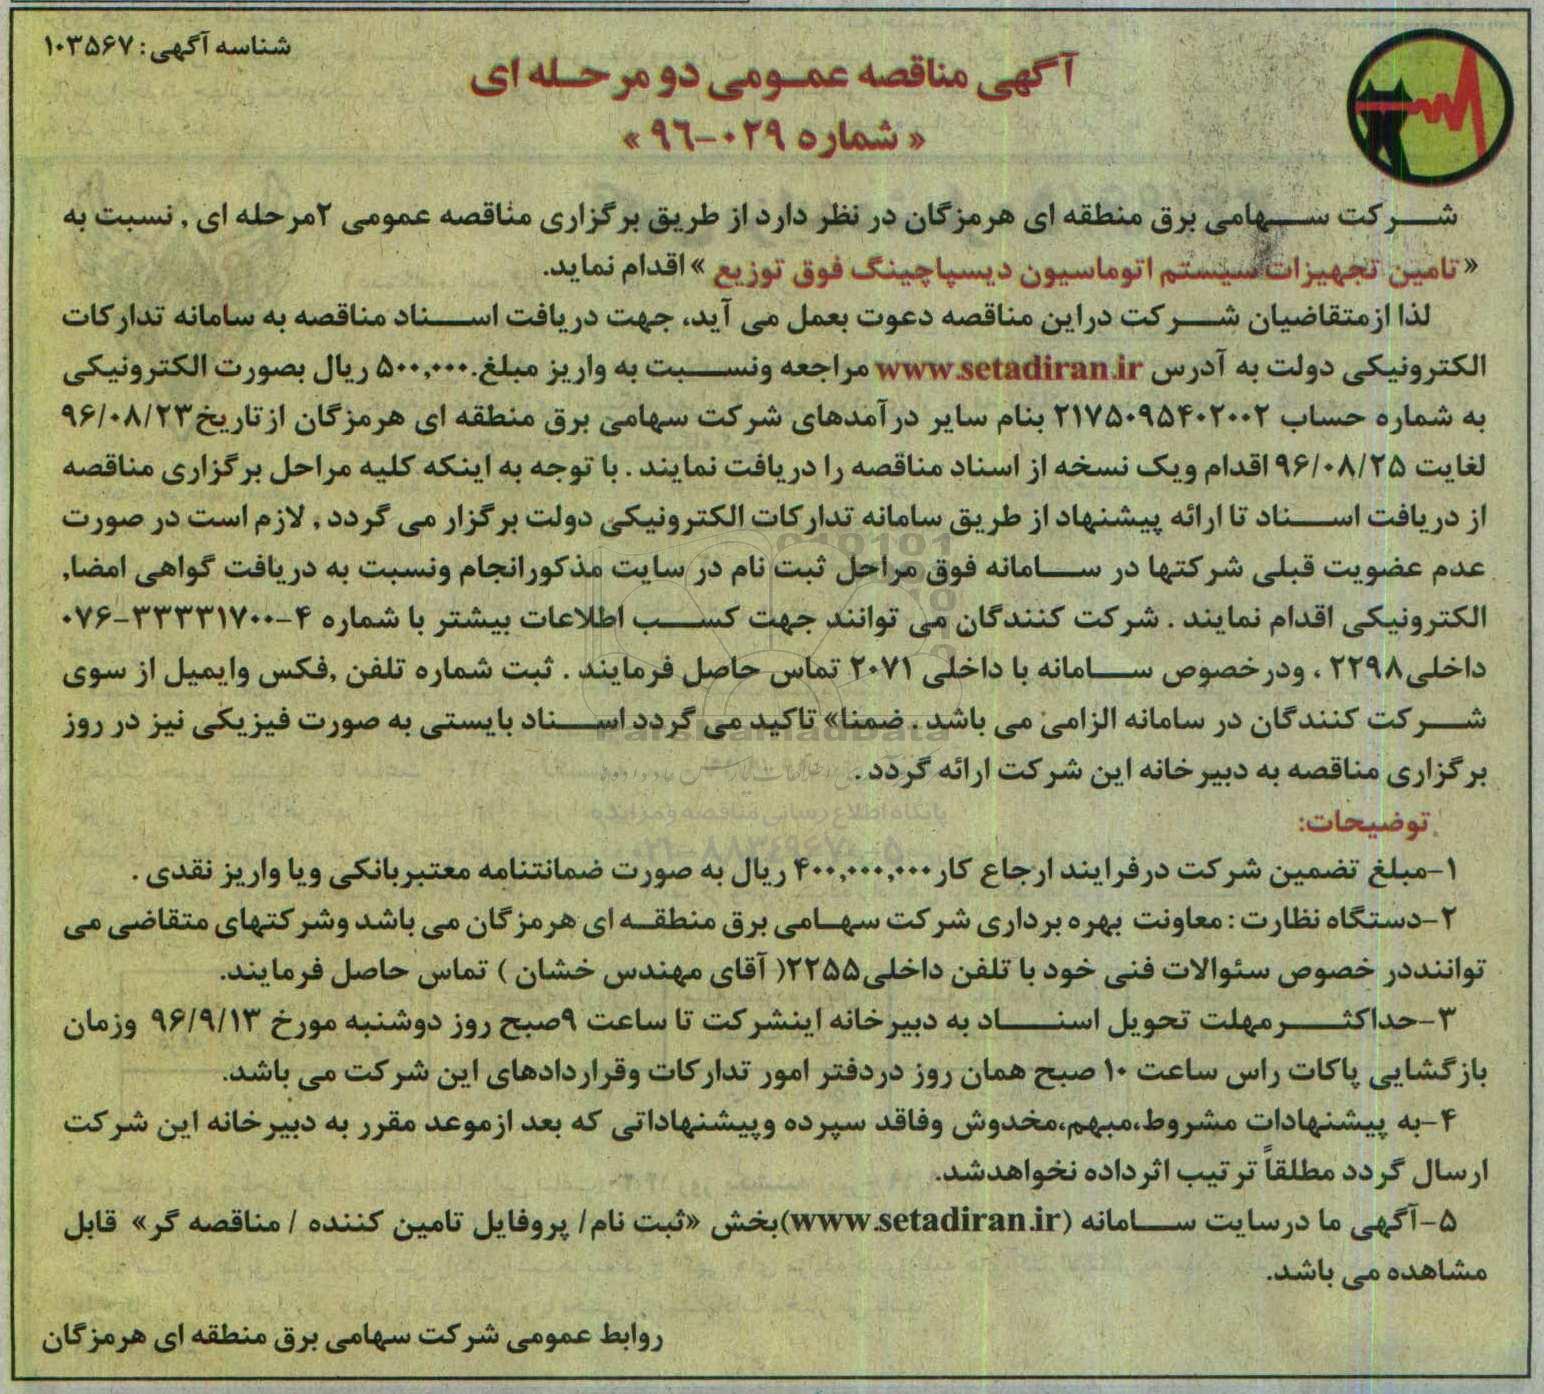 شناسه آگهی: ۱۰۳۵۶۷
آگهی مناقصه عمـومی دو مرحـله ای
« شماره ۰۲۹-۹۶ »
شـرکت سـهامی برق منطقه ای هرمزگان در نظر دارد از طریق برگزاری مناقصه عمومی ۲مرحله ای , نسبت به
« تامین تجهیزات سیستم اتوماسیون دیسپاچینگ فوق توزیع » اقدام نماید.
لذا ازمتقاضیان شـرکت دراین مناقصه دعوت بعمل می آید، جهت دریافت اسـناد مناقصه به سامانه تدارکات
الکترونیکی دولت به آدرس www.setadiran.ir مراجعه ونسـبت به واریز مبلغ.۵۰۰,۰۰۰ ریال بصورت الکترونیکی
به شماره حساب ۲۱۷۵۰۹۵۴۰۲۰۰۲ بنام سایر درآمدهای شرکت سهامی برق منطقه ای هرمزگان ازتاریخ۹۶/۰۸/۲۳
لغایت ۹۶/۰۸/۲۵ اقدام ویک نسخه از اسناد مناقصه را دریافت نمایند . با توجه به اینکه کلیه مراحل برگزاری مناقصه
از دریافت اسـناد تا ارائه پیشنهاد از طریق سامانه تدارکات الکترونیکی دولت برگزار می گردد , لازم است در صورت
عدم عضویت قبلی شرکتها در سـامانه فوق مراحل ثبت نام در سایت مذکورانجام ونسبت به دریافت گواهی امضاء
الکترونیکی اقدام نمایند . شرکت کنندگان می توانند جهت کسـب اطلاعات بیشتر با شماره ۴-۳۳۳۳۱۷۰۰-۰۷۶
داخلی۲۲۹۸ ، ودرخصوص سـامانه با داخلی ۲۰۷۱ تماس حاصل فرمایند . ثبت شماره تلفن ,فکس وایمیل از سوی
شـرکت کنندگان در سامانه الزامی می باشد . ضمنا» تاکید می گردد اسـناد بایستی به صورت فیزیکی نیز در روز
برگزاری مناقصه به دبیرخانه این شرکت ارائه گردد .
توضیحات:
۱-مبلغ تضمین شرکت درفرایند ارجاع کار۴۰۰,۰۰۰,۰۰۰ ریال به صورت ضمانتنامه معتبربانکی ویا واریز نقدی .
۲-دستگاه نظارت : معاونت بهره برداری شرکت سهـامی برق منطقـه ای هرمزگان می باشد وشرکتهای متقاضی می
تواننددر خصوص سئوالات فنی خود با تلفن داخلی۲۲۵۵( آقای مهندس خشان ) تماس حاصل فرمایند.
۳-حداکثـرمهلت تحویل اسنـاد به دبیرخانه اینشرکت تا ساعت ۹صبح روز دوشنبه مورخ ۹۶/۹/۱۳ وزمان
بازگشایی پاکات راس ساعت ۱۰ صبح همان روز دردفتر امور تدارکات وقراردادهای این شرکت می باشد.
۴-به پیشنهادات مشروط،مبهم،مخدوش وفاقد سپرده وپیشنهاداتی که بعد ازموعد مقرر به دبیرخانه این شرکت
ارسال گردد مطلقاً ترتیب اثرداده نخواهدشد.
۵-آگهی ما درسایت سـامانه (www.setadiran.ir)بخش «ثبت نام/ پروفایل تامین کننده / مناقصه گر» قابل
مشاهده می باشد.
روابط عمومی شرکت سهامی برق منطقه ای هرمزگان